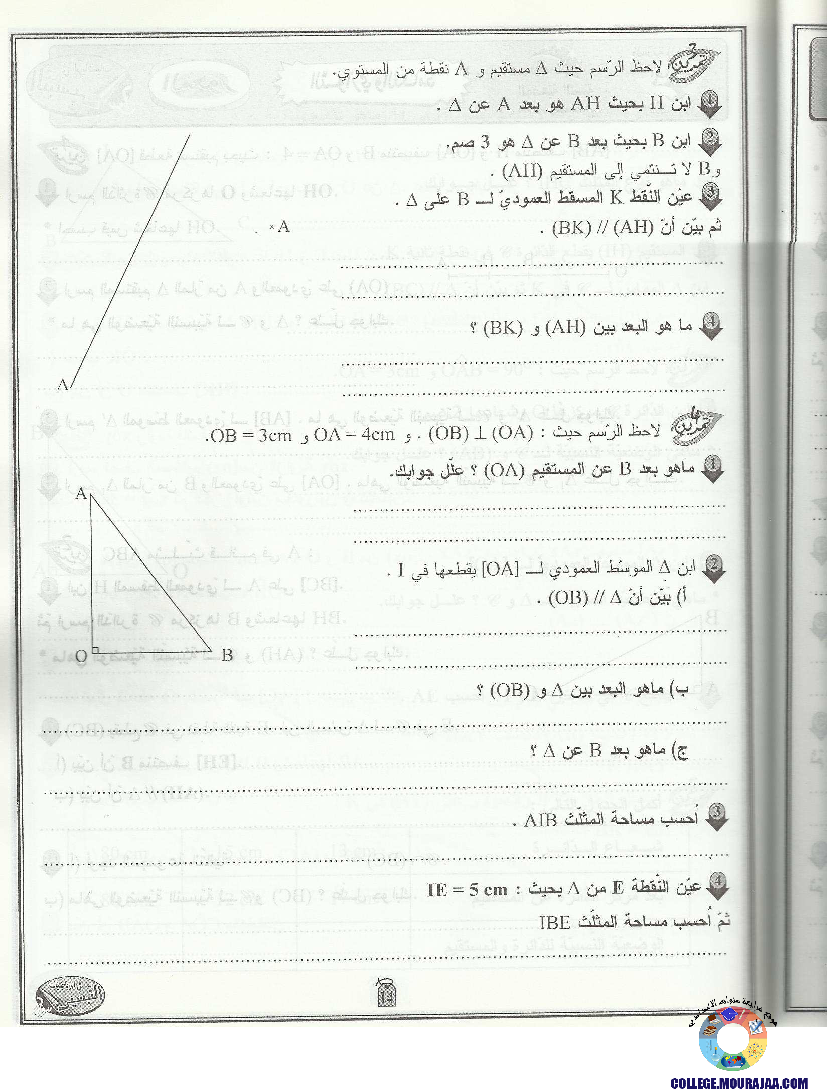 تمرين 3 لاحظ الرّسم حيث Δ مستقيم و A نقطة من المستوي.
1 ابن H بحيث AH هو بعد A عن Δ .
2 ابن B بحيث بعد B عن Δ هو 3 صم.
و B لا تنتمي إلى المستقيم (AH) .
3 عيّن النّقط K المسقط العموديّ لـ B على Δ .
ثم بيّن أنّ (AH) // (BK) .
×A
Δ
4 ما هو البعد بين (AH) و (BK) ؟
تمرين لاحظ الرّسم حيث : (OA) ⊥ (OB) . و OA = 4cm و OB = 3cm.
1 ماهو بعد B عن المستقيم (OA) ؟ علّل جوابك.
A
O
B
2 ابن Δ الموسّط العمودي لـ [OA] يقطعها في I .
أ) بيّن أنّ Δ // (OB) .
ب) ماهو البعد بين Δ و (OB) ؟
ج) ماهو بعد B عن Δ ؟
3 أحسب مساحة المثلّث AIB .
4 عيّن النّقطة E من Δ بحيث : IE = 5 cm
ثمّ أحسب مساحة المثلّث IBE
COLLEGE.MOURAJAA.COM